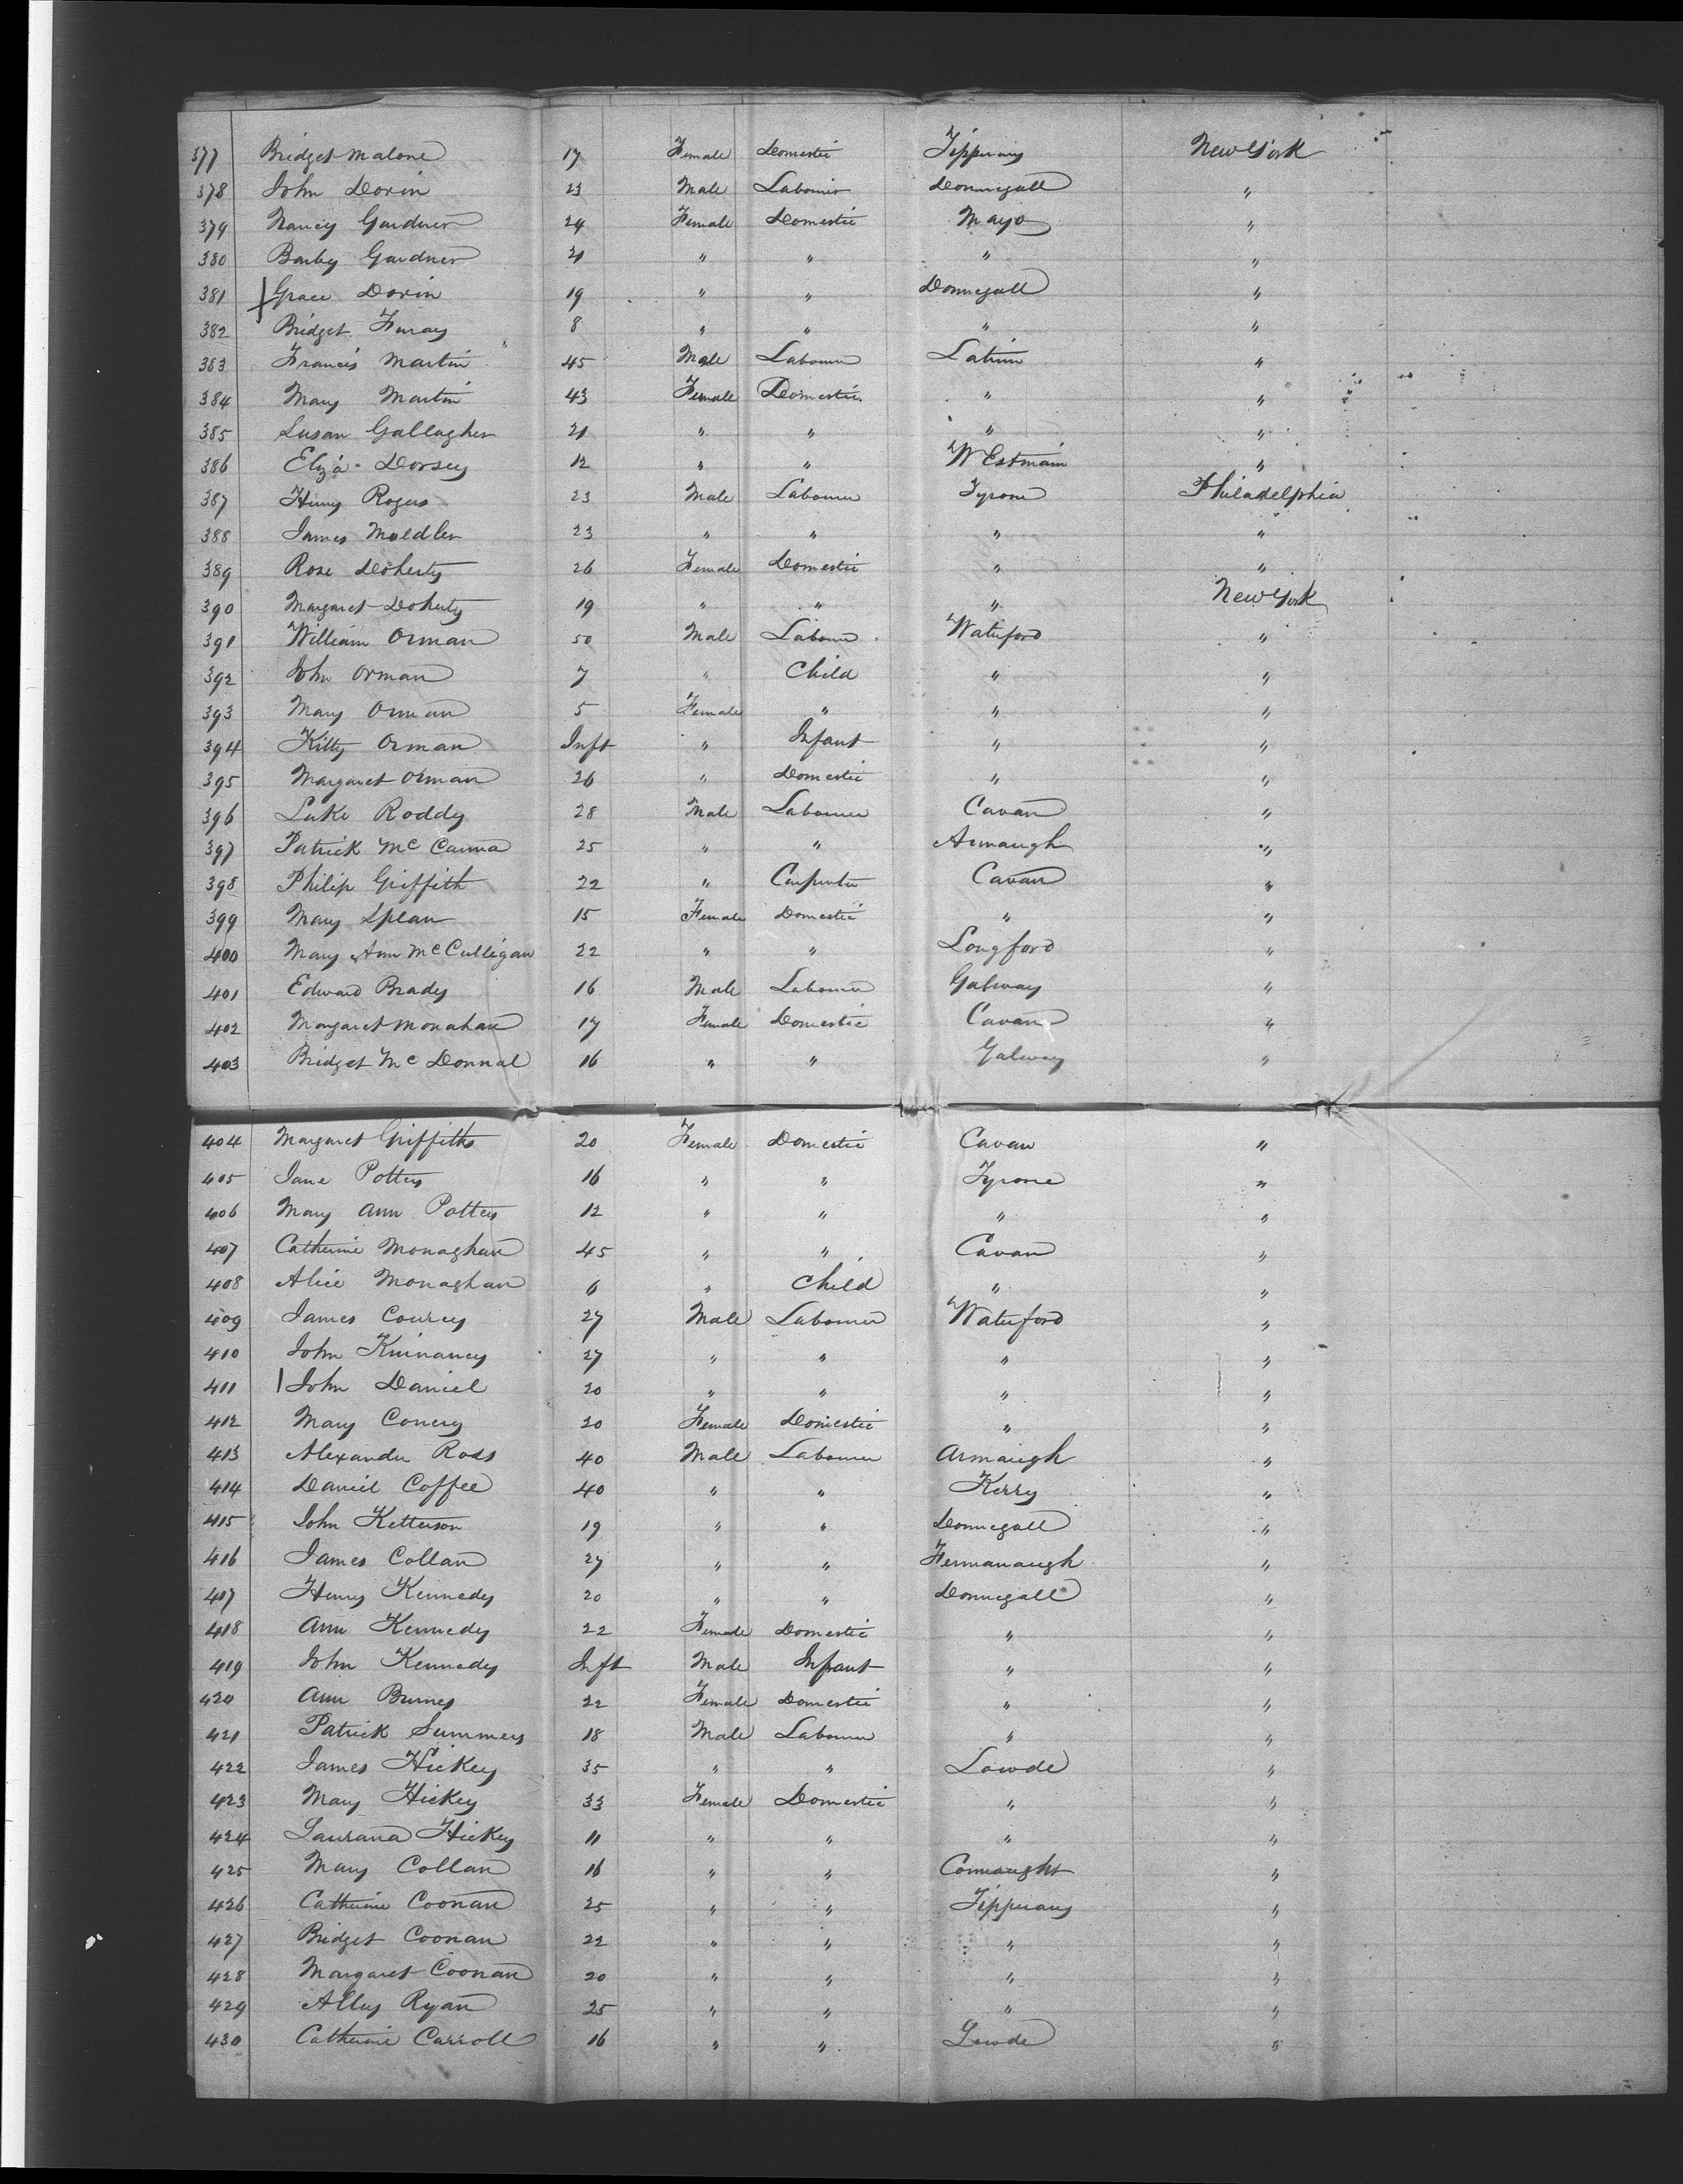 377 Bridget Malone 17 Female Domestic Tipperary New York
378 John Dorin 23 Male Labourer Donnegall "
379 Nancy Gardner 24 Female Domestic Mayo "
380 Barby Gardner 21 " " " "
381 Grace Dorin 19 " " Donnegall "
382 Bridget 8 " " " "
383 Francis Martin 45 Male Labourer Latrim "
384 Mary Martin 43 Female Domestic " "
385 Susan Gallagher 21 " " " "
386 Eliza Dorsey 12 " " WEstmain "
387 Henry Rogers 23 Male Labourer Tyrone Philadelphia
388 James 23 " " " "
389 Rose Doherty 26 Female Domestic " "
390 Margaret Doherty 19 " " " New York
391 William Orman 50 Male Labourer Waterford "
392 John Orman 7 " Child " "
393 Mary Orman 5 Female " " "
394 Kitty Orman Inft " Infant " "
395 Margaret Orman 26 " Domestic " "
396 Luke Roddy 28 Male Labourer Cavan "
397 Patrick Mc Canna 25 " " Armaugh "
398 Philip Griffith 22 " Carpenter Cavan "
399 Mary Splan 15 Female Domestic " "
400 Mary Ann McCulligan 22 " " Longford "
401 Edward Brady 16 Male Labourer Galway "
402 Margaret Monahan 17 Female Domestic Cavan "
403 Bridget Mc Donnal 16 " " Galway "
404 Margaret Griffiths 20 Female Domestic Cavan "
405 Jane Potters 16 " " Tyrone "
406 Mary Ann Potters 12 " " " "
407 Catherine Monaghan 45 " " Cavan "
408 Alice Monaghan 6 " Child " "
409 James Courcy 27 Male Labourer Waterford "
410 John Kinnancy 27 " " " "
411 John Daniel 20 " " " "
412 Mary Conery 20 Female Domestic " "
413 Alexander Ross 40 Male Labourer Armaugh "
414 Daniel Coffee 40 " " Kerry "
415 John Ketterson 19 " " Donnegall "
416 James Collan 27 " " Fermanaugh "
417 Henry Kennedy 20 " " Donnegall "
418 Ann Kennedy 22 Female Domestic " "
419 John Kennedy Inft Male Infant " "
420 Ann Burnes 22 Female Domestic " "
421 Patrick Summers 18 Male Labourer " "
422 James Hickey 35 " " Lowde "
423 Mary Hickey 33 Female Domestic " "
424 Laurana Hickey 11 " " " "
425 Mary Collan 16 " " Connaught "
426 Catherine Coonan 25 " " Tipperary "
427 Bridget Coonan 22 " " " "
428 Margaret Coonan 20 " " " "
429 Alley Ryan 25 " " " "
430 Catherine Carroll 16 " " Lowde "